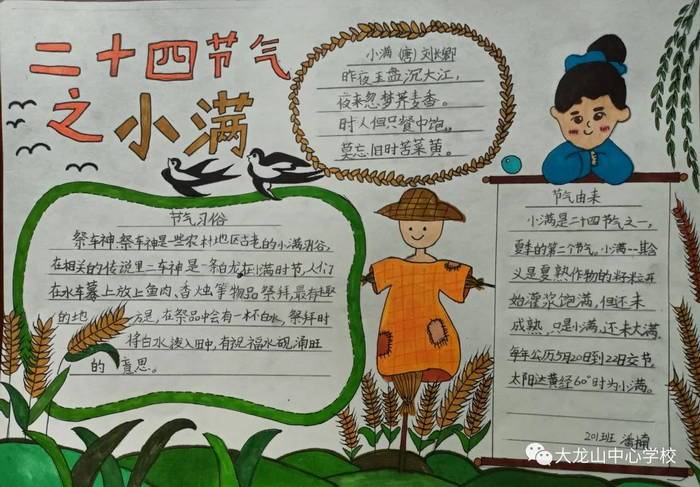 二十四节气
之小满
小满(唐)刘长卿
昨夜玉盘沉大江,
夜来忽梦荞麦香。
时人但只餐中饱,
莫忘旧时苦菜黄。
节气习俗
祭车神,祭车神是一些农村地区古老的小满习俗,
在相关的传说里二车神是一条白龙在小满时节,人们
在水车幕上放上鱼肉、香烛等物品祭拜,最有趣
的地方是,在祭品中会有一杯白水,祭拜时
将白水泼入田中,有祝福水源涌旺
的意思。
节气由来
小满是二十四节气之一,
夏季的第二个节气。小满--其含
义是夏熟作物的籽粒开
始灌浆饱满,但还未
成熟,只是小满,还未大满
每年公历5月20日到22日交节。
太阳达黄经60°时为小满。
201班
大龙山中心学校